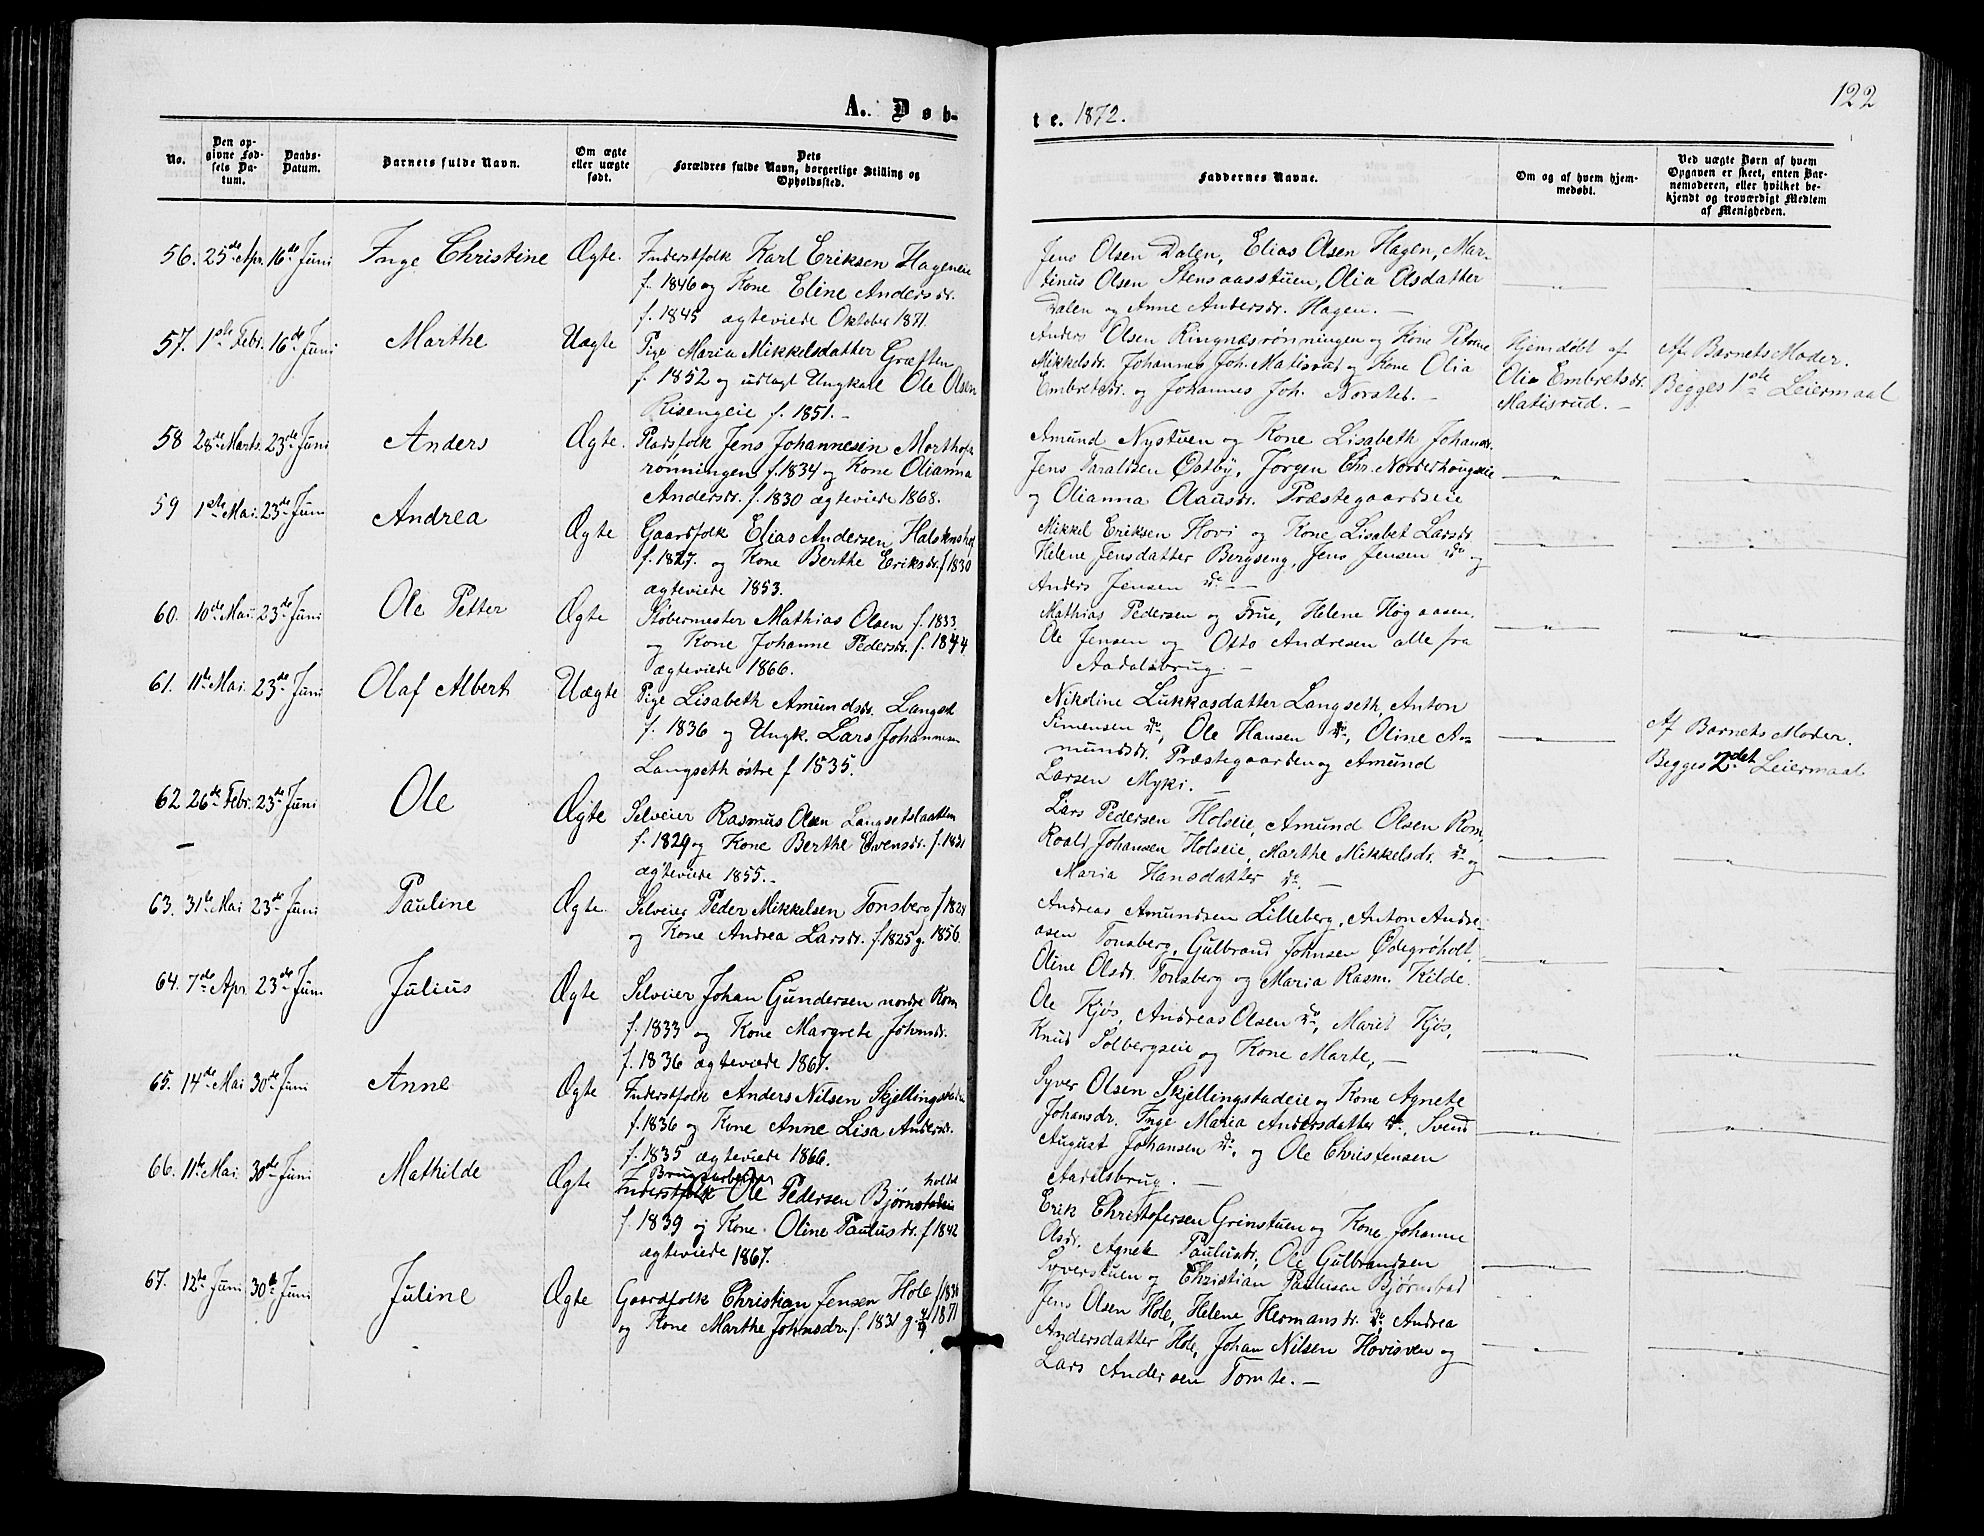 122
A. Døb-
te. 1872.
No.
Den opgivne Fødsels Datum.
Daabs-Datum.
Barnets fulde Navn.
Om ægte eller uægte født.
Dets Forældres fulde Navn, borgerlige Stilling og Opholdssted.
Faddernes Navne.
Om og af hvem hjemmedøbt.
Ved uægte Børn af hvem Opgaven er skeet, enten Barnemoderen, eller hvilket bekjendt og troværdigt Medlem af Menigheden.
56. 25de Apr. 16de Juni Inge Christine Ægte. Inderstfolk Karl Eriksen Hageneie
f. 1846 og Kone Eline Andersdr.
f. 1845 ægteviede Oktober 1871.
Jens Olsen Dalen, Elias Olsen Hagen, Mar-
tinus Olsen Stensaasstuen, Olia Olsdatter
Dalen og Anne Andersdr. Hagen. —
57. 1ste Febr. 16de Juni Marthe Uægte Pige Maria Mikkelsdatter Græften
f. 1852 og udlagt Ungkarl Ole Olsen
Risengeie f. 1851. —
Anders Olsen Ringnæsrønningen og Kone Petrine
Mikkelsdr. Johannes Joh. Matisrud og Kone Olia
Embretsdr. og Johannes Joh. Norsted. —
Hjemdøbt af
Olia Embretsdr.
Matisrud. —
Af Barnets Moder.
Begges 1ste Leiermaal
58 28de Marts. 23de Juni Anders Ægte. Pladsfolk Jens Johannesen Morthofs
rønningen f. 1834 og Kone Olianna
Andersdr. f. 1830 ægteviede 1868.
Amund Nystuen og Kone Lisabeth Johansdr.
Jens Taraldsen Østby, Jørgen Chr. Norderhougseie
og Olianna Olausdr. Præstegaardseie
59 1ste Mai. 23de Juni Andrea Ægte Gaardfolk Elias Andersen Halstenshof
f. 1827. og Kone Berthe Eriksdr. f 1830
ægteviede 1853.
Mikkel Eriksen Hovi og Kone Lisabet Larsdr.
Helene Jensdatter Bergseng, Jens Jensen do og
Anders Jensen do —
60. 10de Mai. 23de Juni Ole Petter Ægte Støbermester Mathias Olsen f. 1833.
og Kone Johanne Pedersdr. f. 1844
ægteviede 1866.
Mathias Pedersen og Frue, Helene Høgaasen.
Ole Jensen og Otto Andresen alle fra
Aadalsbrug. —
61. 11te Mai. 23de Juni Olaf Albert Uægte Pige Lisabeth Amundsdr. Langset
f. 1836 og Ungk. Lars Johannesen
Langseth østre f 1835.
Nikoline Lukkasdatter Langseth, Anton
Simensen do, Ole Hansen do, Oline A-
mundsdr. Præstegaarden og Amund
Larsen Myki. —
Af Barnets Moder.
Begges 2det Leiermaal
62 26de Febr. 23de Juni Ole Ægte Selveier Rasmus Olsen Langsetslaatten
f. 1829 og Kone Berthe Evensdr. f. 1831
ægteviede 1855. —
Lars Pedersen Holseie, Amund Olsen Rom,
Roald Johansen Holseie, Marthe Mikkelsdr. do og
Maria Hansdatter do. —
63. 31te Mai 23de Juni Pauline Ægte. Selveier Peder Mikkelsen Tonsberg f 1824
og Kone Andrea Larsdr. f. 1825 g. 1856.
Andreas Amundsen Lilleberg, Anton Andre-
asen Tonsberg, Gulbrand Johnsen Ødegrøholt,
Oline Olsdr. Tonsberg og Maria Rasm. Kilde.
64. 7de Apr. 23de Juni Julius Ægte Selveier Johan Gundersen nordre Rom
f. 1833 og Kone Margrete Johnsdr.
f. 1836 ægteviede 1867.
Ole Kjøs, Andreas Olsen do, Marit Kjøs,
Knud Solbergseie og Kone Marte, —
65. 14de Mai 30de Juni Anne Ægte Inderstfolk Anders Nilsen Skjellingstadeie
f. 1836 og Kone Anne Lisa Andersdr.
f. 1835 ægteviede 1866.
Syver Olsen Skjellingstadeie og Kone Agnete
Johansdr. Inge Maria Andersdatter do, Svend
August Johansen do, og Ole Christensen
Aadalsbrug. —
66. 11te Mai. 30de Juni Mathilde Ægte Brugsarbeider holdt
Inderstfolk Ole Pedersen Bjørnstadeie
f. 1839 og Kone. Oline Paulusdr. f 1842
ægteviede 1867.
Erik Christofersen Grinstuen og Kone Johanne
Olsdr. Agnete Paulusdr., Ole Gulbrandsen
Syverstuen og Christian Paulusen Bjørnstad
67. 12te Juni 30de Juni Juline Ægte Gaardfolk Christian Jensen Hole f 1830
og Kone Marthe Johnsdr. f. 1831 g 4/9 1871
Jens Olsen Hole, Helene Hermansdr. do, Andrea
Andersdatter Hole, Johan Nilsen Hovisven og
Lars Andersen Tomte. —